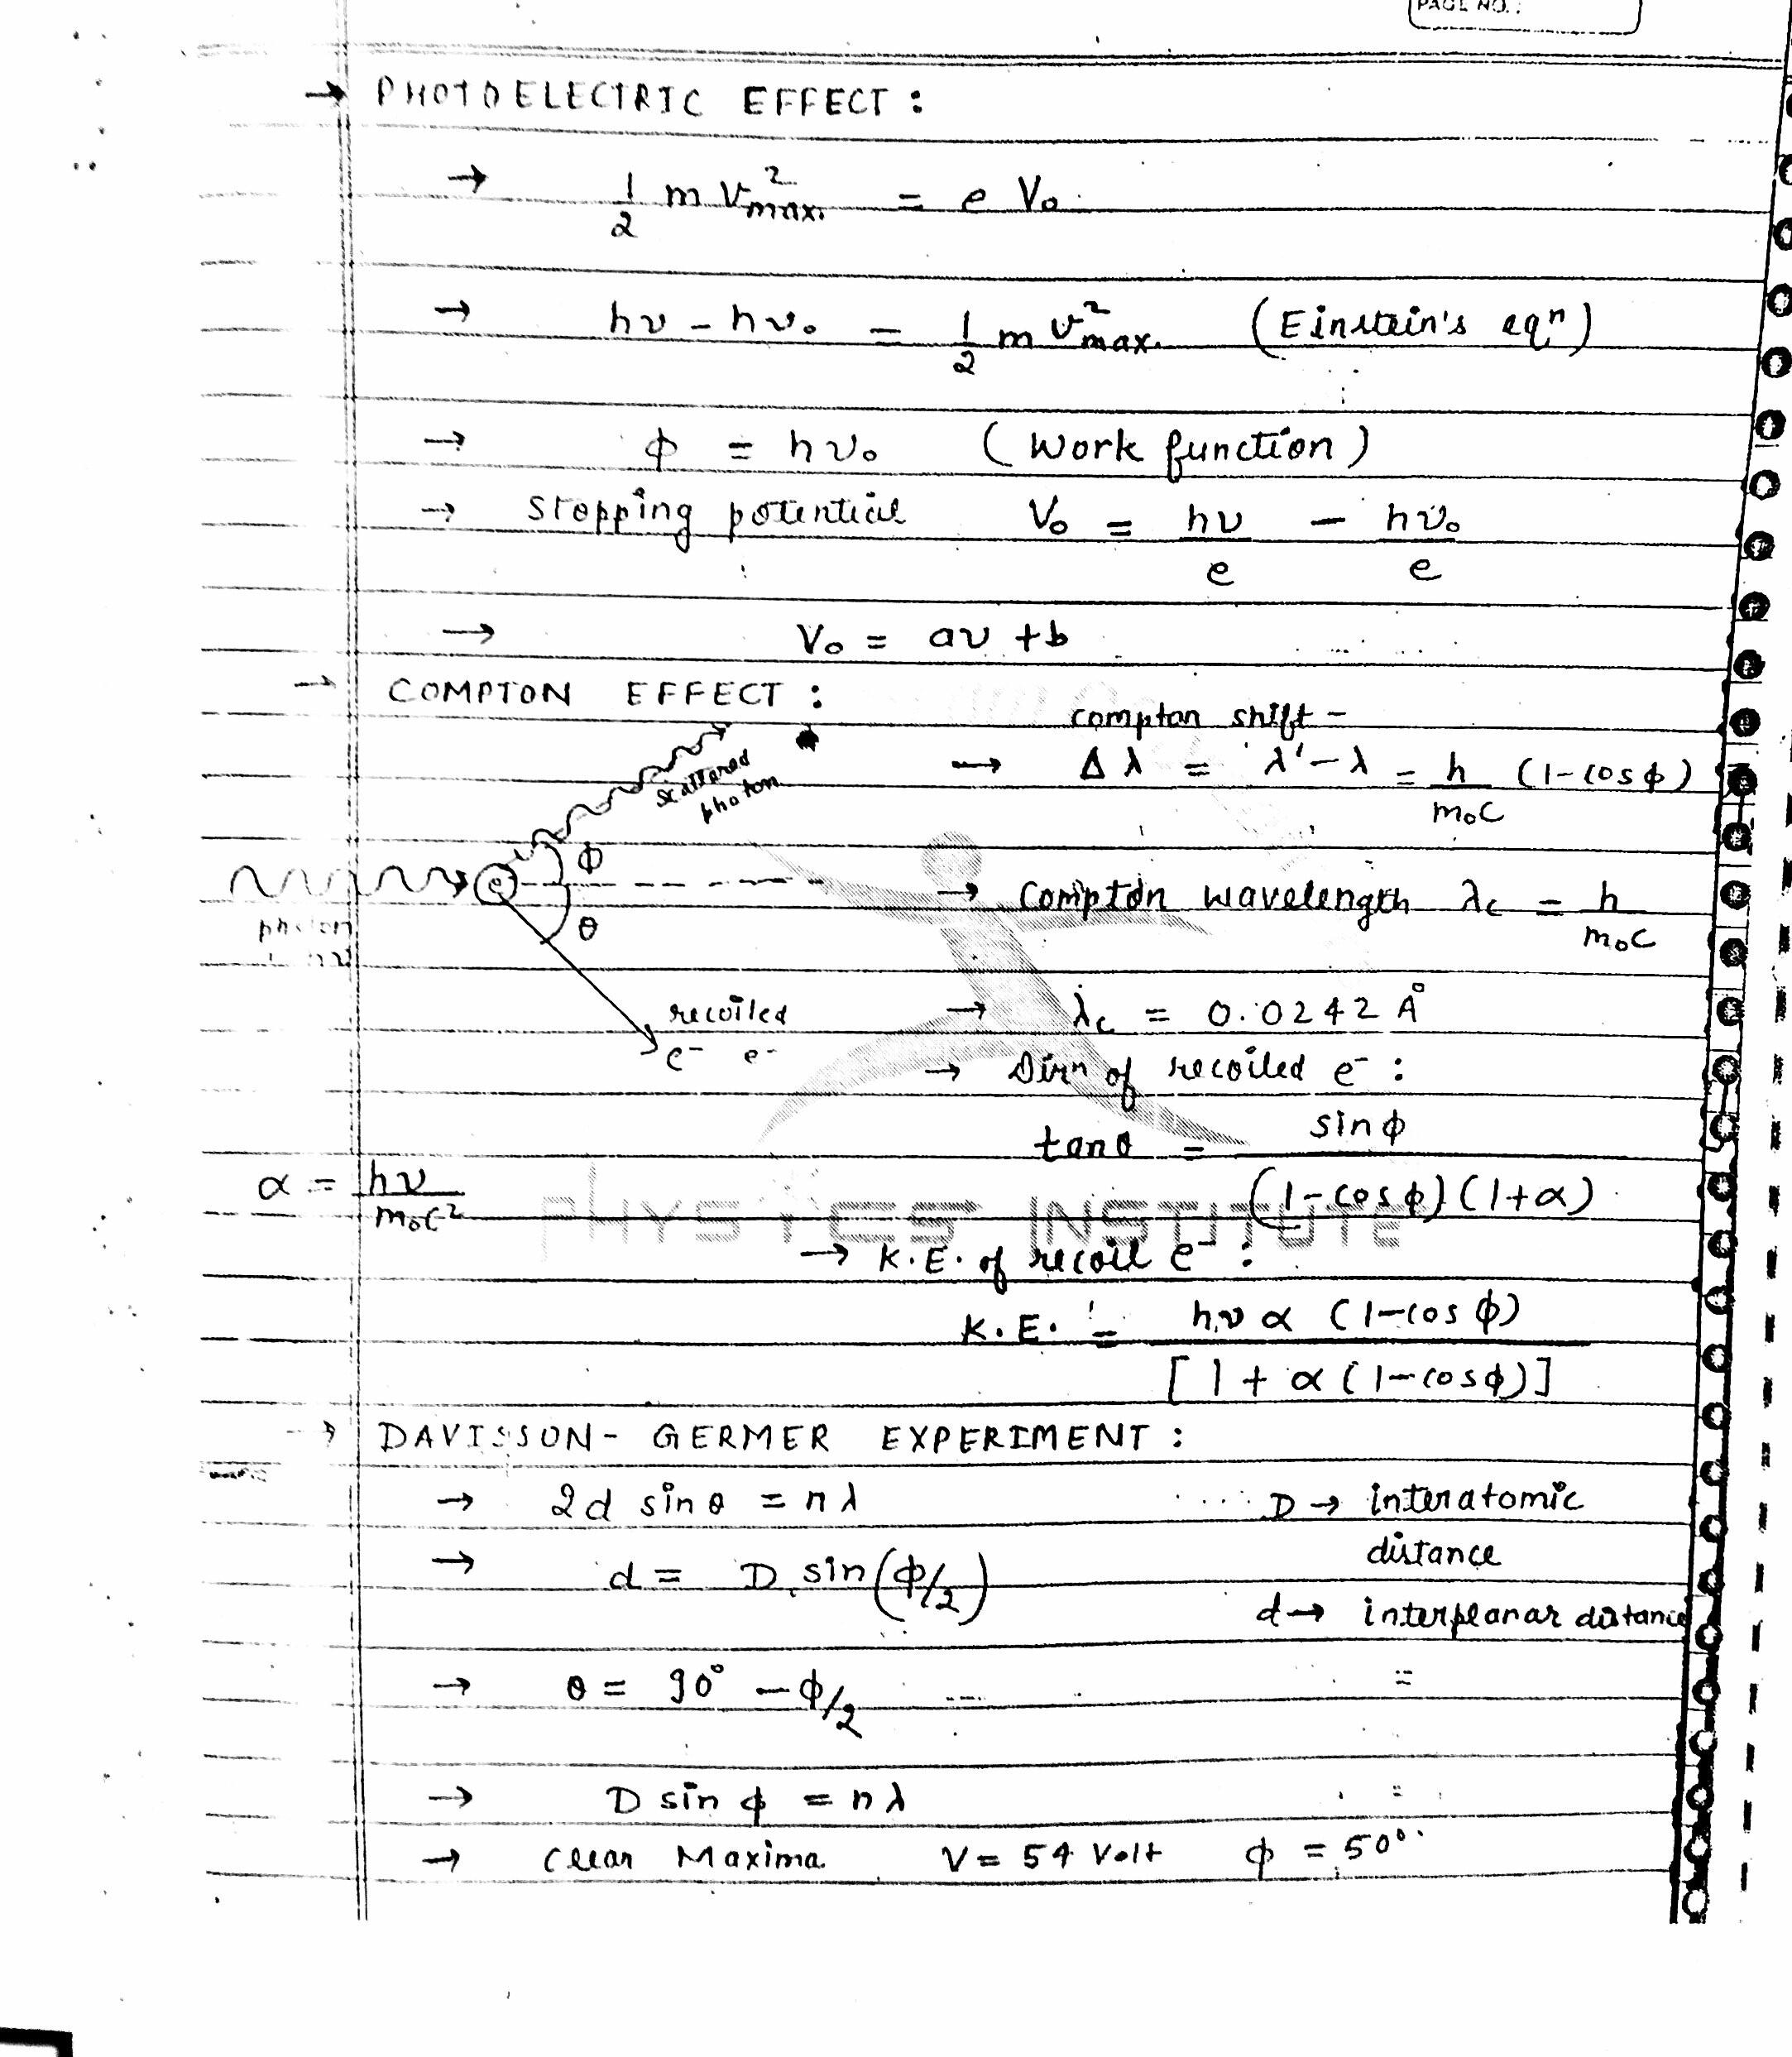 PAGE NO.:
→ PHOTOELECTRIC EFFECT :
→ 1/2 m v²max. = e V₀
→ hν - hν₀ = 1/2 m v²max. (Einstein's eqⁿ)
→ ϕ = hν₀ (Work function)
→ Stopping potential V₀ = hν/e - hν₀/e
→ V₀ = aν + b
→ COMPTON EFFECT :
compton shift -
→ Δλ = λ' - λ = h/m₀c (1-cosϕ)
scattered photon
ϕ
e
→ Compton wavelength λc = h/m₀c
θ
photon
→ λc = 0.0242 Å
recoiled
e⁻ e⁻
→ Dirⁿ of recoiled e⁻ :
tanθ = sinϕ / (1-cosϕ)(1+α)
α = hν/m₀c²
PHYSICS INSTITUTE
→ K.E. of recoil e⁻ :
K.E. = hν α (1-cos ϕ) / [1 + α(1-cosϕ)]
→ DAVISSON- GERMER EXPERIMENT :
→ 2d sinθ = nλ D → interatomic
distance
→ d = D sin(ϕ/2)
d → interplanar distance
→ θ = 90° - ϕ/2
→ D sin ϕ = nλ
→ Clear Maxima V = 54 Volt ϕ = 50°